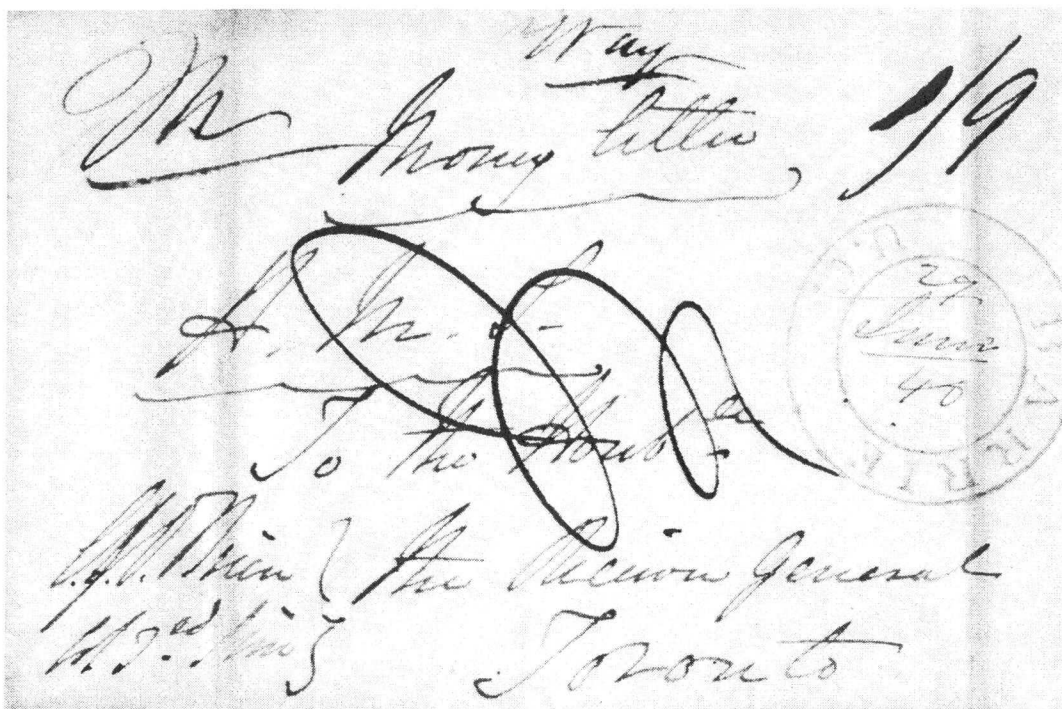 Way
Money letter 1/9
BARRIE U.C.
29
June
40
To the Honble
the Receiver General
Toronto